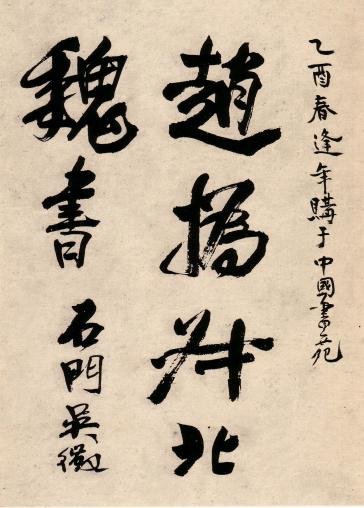 乙酉春逢年購于中國書苑
趙撝叔北
魏書 石門吳徵